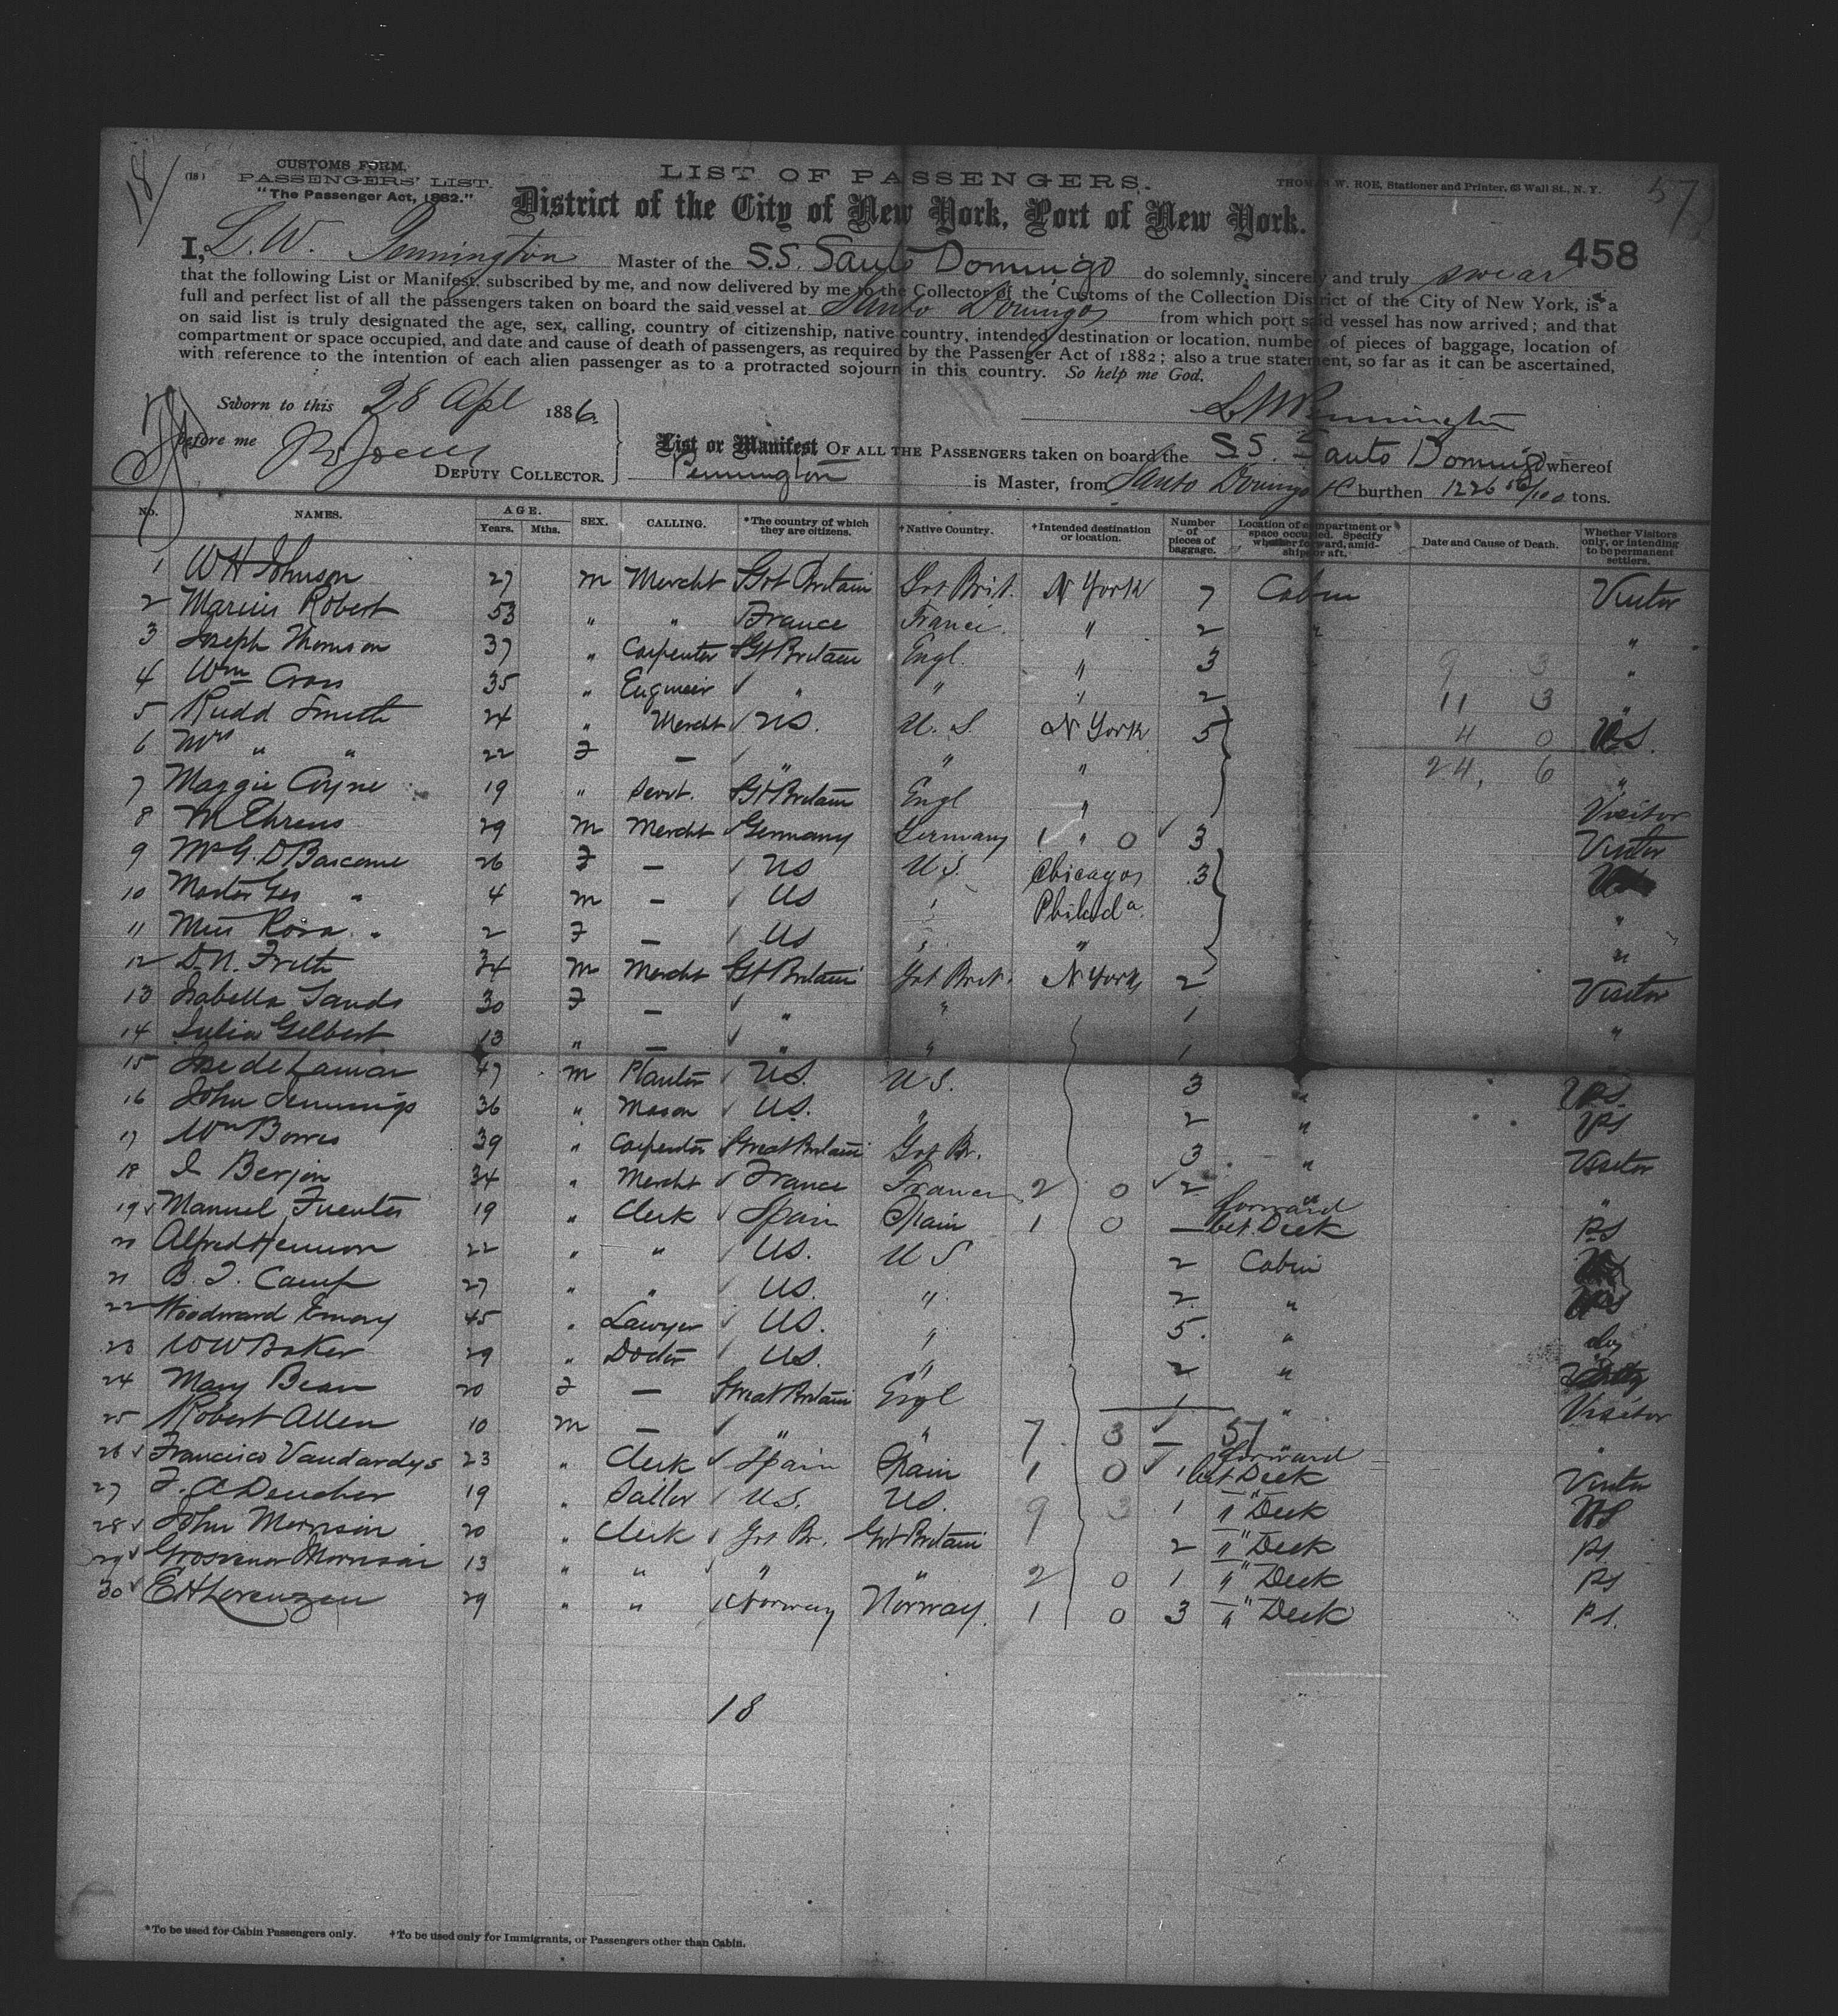 18
CUSTOMS FORM.
(18) PASSENGERS' LIST.
"The Passenger Act, 1882."
LIST OF PASSENGERS.
THOMAS W. ROE, Stationer and Printer, 63 Wall St., N. Y.
57
District of the City of New York, Port of New York.
458
I, L. W. Pennington Master of the S.S. Santo Domingo do solemnly, sincerely and truly swear
that the following List or Manifest, subscribed by me, and now delivered by me to the Collector of the Customs of the Collection District of the City of New York, is a
full and perfect list of all the passengers taken on board the said vessel at Santo Domingo from which port said vessel has now arrived; and that
on said list is truly designated the age, sex, calling, country of citizenship, native country, intended destination or location, number of pieces of baggage, location of
compartment or space occupied, and date and cause of death of passengers, as required by the Passenger Act of 1882; also a true statement, so far as it can be ascertained,
with reference to the intention of each alien passenger as to a protracted sojourn in this country. So help me God.
Sworn to this 28 Apl 1886. LW Pennington
before me
DEPUTY COLLECTOR.
List or Manifest OF ALL THE PASSENGERS taken on board the S.S. Santo Domingo whereof
Pennington is Master, from Santo Domingo &c burthen 1226 56/100 tons.
No. NAMES. AGE. Years. Mths. SEX. CALLING. *The country of which they are citizens. †Native Country. †Intended destination or location. Number of pieces of baggage. Location of compartment or space occupied. Specify whether forward, amidships or aft. Date and Cause of Death. Whether Visitors only, or intending to be permanent settlers.
1 W H Johnson 27 m Mercht Grt Britain Grt Brit. N York 7 Cabin Visitor
2 Marius Robert 53 " " France France " 2 " "
3 Joseph Thomson 37 " Carpenter Gt Britain Engl. " 3 " 9 3 "
4 Wm Cross 35 " Engineer " " " 2 11 3 "
5 Rudd Smith 24 " Mercht US. U. S. N York 5 4 0 US.
6 Mrs " " 22 F — " " " 24. 6 "
7 Maggie Coyne 19 " Servt. Gt Britain Engl " Visitor
8 M Ehrens 29 m Mercht Germany Germany 1 " 0 3 Visitor
9 Mrs G. D Bascome 26 F — US U S. Chicago 3
10 Master Geo " 4 m — US " Philada. "
11 Miss Rosa " 2 F — US " " "
12 D. N. Frith 34 m Mercht Gt Britain Grt Brit. N York 2 Visitor
13 Isabella Sands 30 F — " " 1 "
14 Julia Gilbert 13 " — " " 1
15 Jose de Lamar 47 m Planter US. U S. 3 "
16 John Jennings 36 " Mason US. " 2 "
17 Wm Borres 39 " Carpenter Great Britain Grt Br. 3 " Visitor
18 J Berjon 34 " Mercht France France 2 0 2 " "
19 Manuel Fuentes 19 " Clerk Spain Spain 1 0 — forward bet. Deck PS
Alfred Hennon 22 " " US. U S 2 Cabin
21 B. J. Camp 27 " " US. " 2. "
22 Woodward Emory 45 " Lawyer US. " 5. "
23 W W Baker 29 " Doctor US. " 2 "
24 Mary Bean 20 F — Great Britain Engl 1 " Visitor
25 Robert Allen 10 m — " " 7 3 — 57 "
26 Francisco Vandardys 23 " Clerk Spain Spain 1 0 1 forward bet Deck Visitor
27 F. A Deucher 19 " Sailor US. US. 9 3 1 " Deck US
28 John Morrison 20 " Clerk Grt Br. Grt Britain 2 " Deck PS
29 Grosvenor Morrison 13 " " " " 2 0 1 " Deck PS
30 E H Lorenzen 29 " " Norway Norway. 1 0 3 " Deck PS.
18
*To be used for Cabin Passengers only. †To be used only for Immigrants, or Passengers other than Cabin.